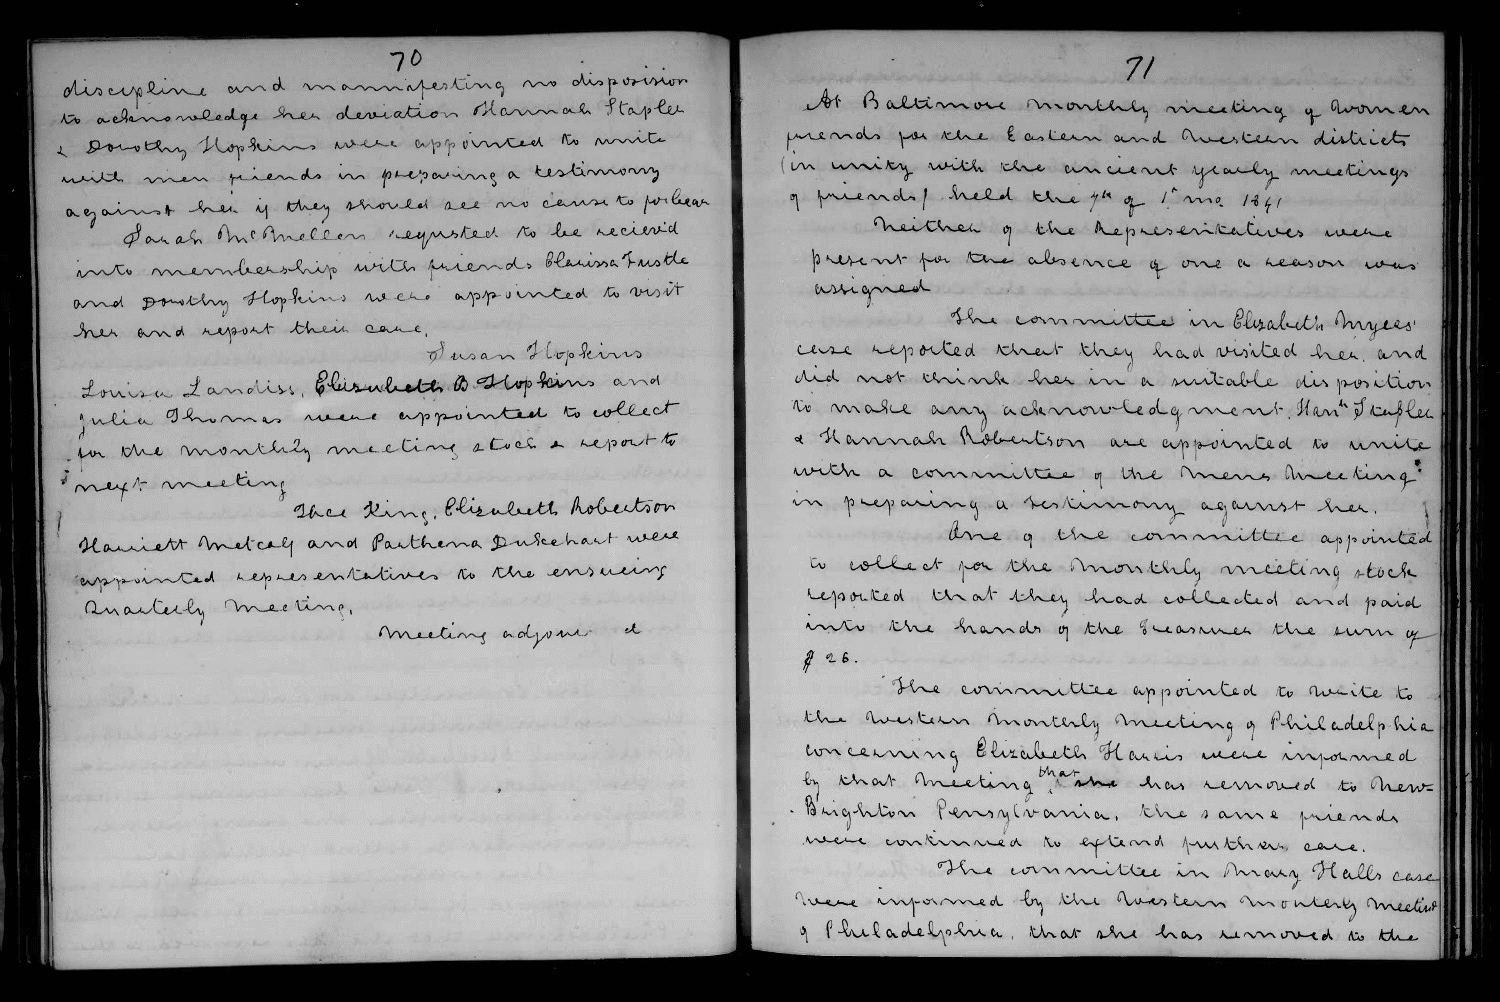 70
discipline and mannifesting no disposision
to acknowledge her deviation Hannah Stapler
& Dorothy Hopkins were appointed to unite
with men friends in preparing a testimony
against her if they should see no cause to forbear
Sarah McMullen requsted to be recieved
into membership with friends Clarissa Fustle
and Dorothy Hopkins were appointed to visit
her and report their care.
Susan Hopkins
Louisa Landiss, Elizabeth B Hopkins and
Julia Thomas were appointed to collect
for the monthly meeting stock & report to
next meeting
King, Elizabeth Robertson
Harriett Metcalf and Parthena Dukehart were
appointed representatives to the ensueing
Quarterly Meeting.
Meeting adjourned
71
At Baltimore monthly meeting of Women
friends for the Eastern and Western districts
(in unity with the ancient yearly meetings
of friends) held the 7th of 1st mo 1841
Neither of the Representatives were
present for the absence of one a reason was
assigned
The committee in Elizabeth Myers'
case reported that they had visited her, and
did not think her in a suitable disposition
to make any acknowledgment, Hanh Stapler
& Hannah Robertson are appointed to unite
with a committee of the Mens Meeting
in preparing a testimony against her.
One of the committee appointed
to collect for the Monthly meeting stock
reported that they had collected and paid
into the hands of the treasurer the sum of
$ 26.
The committee appointed to write to
the Western Monthly Meeting of Philadelphia
concerning Elizabeth Harris were informed
by that Meeting that she has removed to New-
Brighton Pensylvania, the same friends
were continued to extend further care.
The committee in Mary Halls case
were informed by the Western Monthly Meeting
of Philadelphia, that she has removed to the